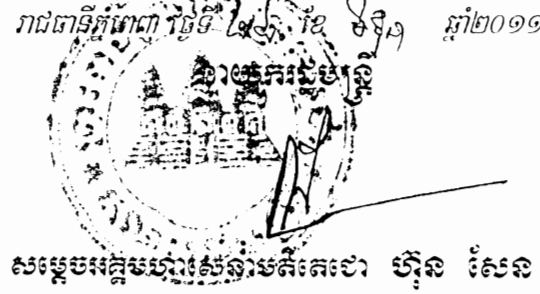 រាជធានីភ្នំពេញ ថ្ងៃទី ខែ ឆ្នាំ២០១១
នាយករដ្ឋមន្ត្រី
សម្តេចអគ្គមហាសេនាបតីតេជោ ហ៊ុន សែន